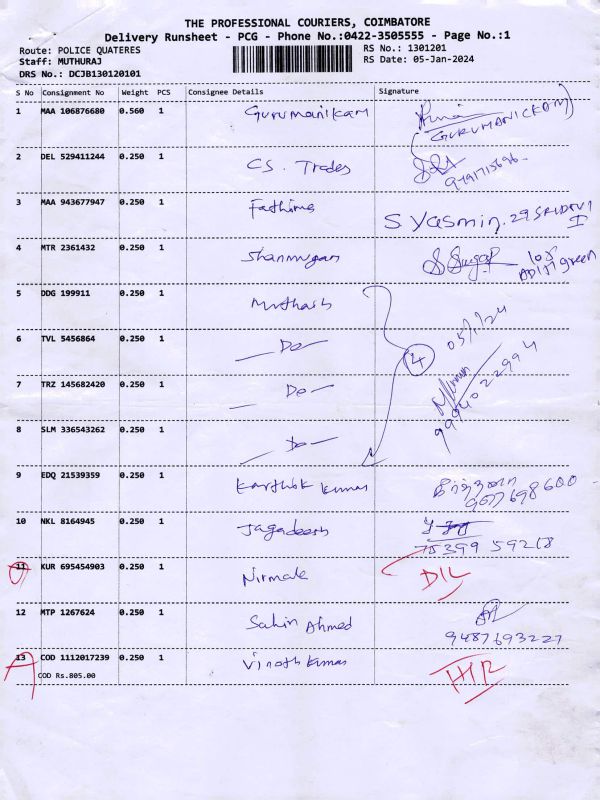 THE PROFESSIONAL COURIERS, COIMBATORE
Delivery Runsheet - PCG - Phone No.:0422-3505555 - Page No.:1
Route: POLICE QUATERES
RS No.: 1301201
Staff: MUTHURAJ
RS Date: 05-Jan-2024
DRS No.: DCJB130120101
S No Consignment No Weight PCS Consignee Details Signature
1 MAA 106876680 0.560 1 Gurumanikam
(GURUMANICKAM)
2 DEL 529411244 0.250 1 CS. Trades
3 MAA 943677947 0.250 1 Fathima S Yasmin. 29 SRIDEVI
I
4 MTR 2361432 0.250 1 Shanmugam 108
ADITI green
5 DDG 199911 0.250 1 Muthash
05/1/24
6 TVL 5456864 0.250 1 — Do — 4
7 TRZ 145682420 0.250 1 — Do —
9994022994
8 SLM 336543262 0.250 1 — Do —
9 EDQ 21539359 0.250 1 Karthik Kumar
9677698600
10 NKL 8164945 0.250 1 Jagadeesh
75399 59218
11 KUR 695454903 0.250 1 Nirmala D/L
12 MTP 1267624 0.250 1 Sahin Ahmed
9487693227
13 COD 1112017239 0.250 1 Vinoth Kumar
COD Rs.805.00